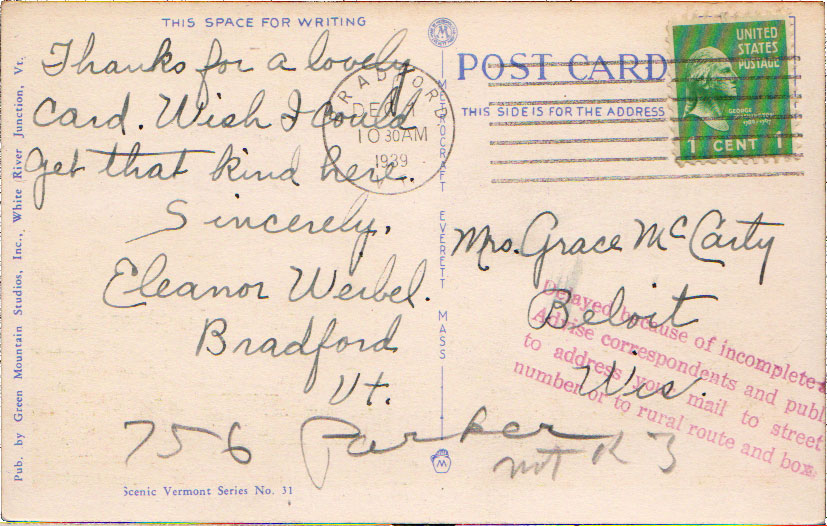 THIS SPACE FOR WRITING
Thanks for a lovely
card. Wish I could
get that kind here.
Sincerely,
Eleanor Weibel.
Bradford
Vt.
Pub. by Green Mountain Studios, Inc., White River Junction, Vt.
METROCRAFT EVERETT MASS
POST CARD
THIS SIDE IS FOR THE ADDRESS
BRADFORD
DEC
10 30AM
1939
VT.
UNITED
STATES
POSTAGE
GEORGE
WASHINGTON
1 CENT 1
Mrs. Grace McCarty
Beloit
Wis.
Delayed because of incomplete a
Advise correspondents and publ
to address your mail to street
number or to rural route and box
756 Parker
not R 3
Scenic Vermont Series No. 31